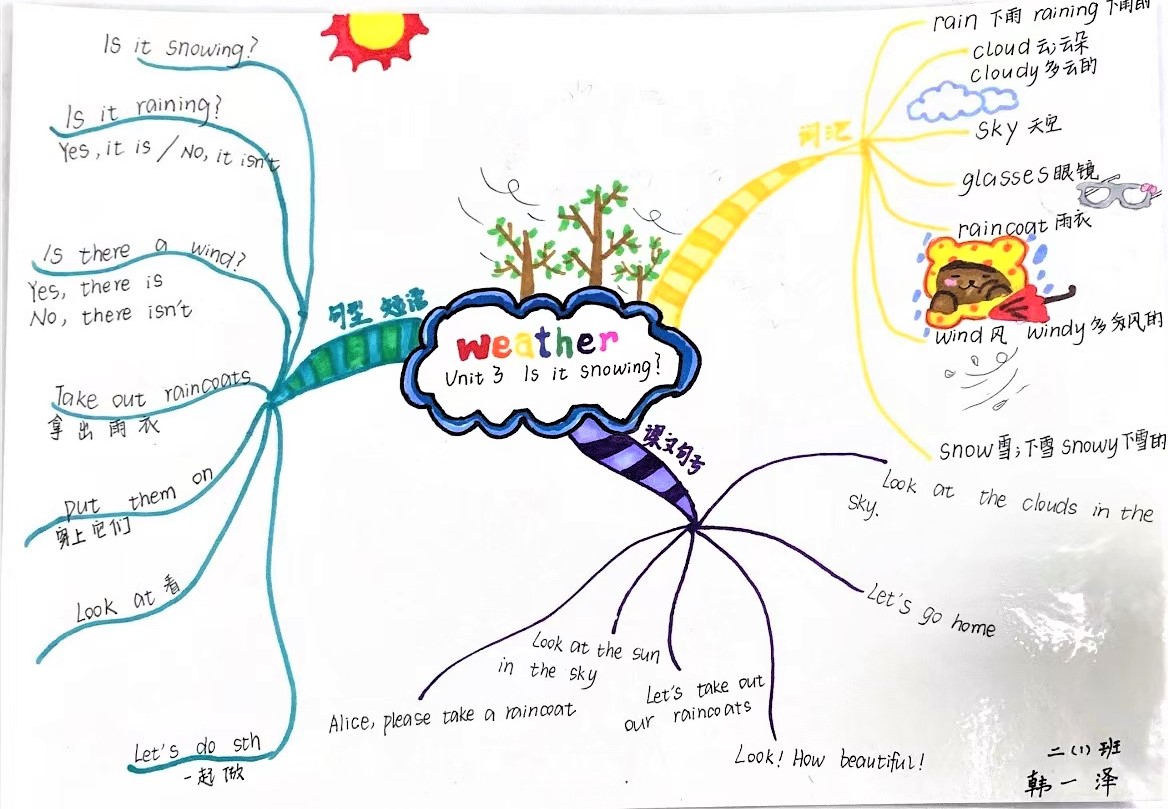 weather
Unit 3 Is it snowing?
句型 短语
Is it snowing?
Is it raining?
Yes, it is / No, it isn't
Is there a wind?
Yes, there is
No, there isn't
Take out raincoats
拿出雨衣
put them on
穿上它们
Look at 看
Let's do sth
一起做
词汇
rain 下雨 raining 下雨的
cloud 云;云朵
cloudy 多云的
sky 天空
glasses 眼镜
raincoat 雨衣
wind 风 windy 多风的
snow 雪;下雪 snowy 下雪的
课文句子
Look at the clouds in the
sky.
Let's go home
Look! How beautiful!
Let's take out
our raincoats
Look at the sun
in the sky
Alice, please take a raincoat
二(1)班
韩一泽